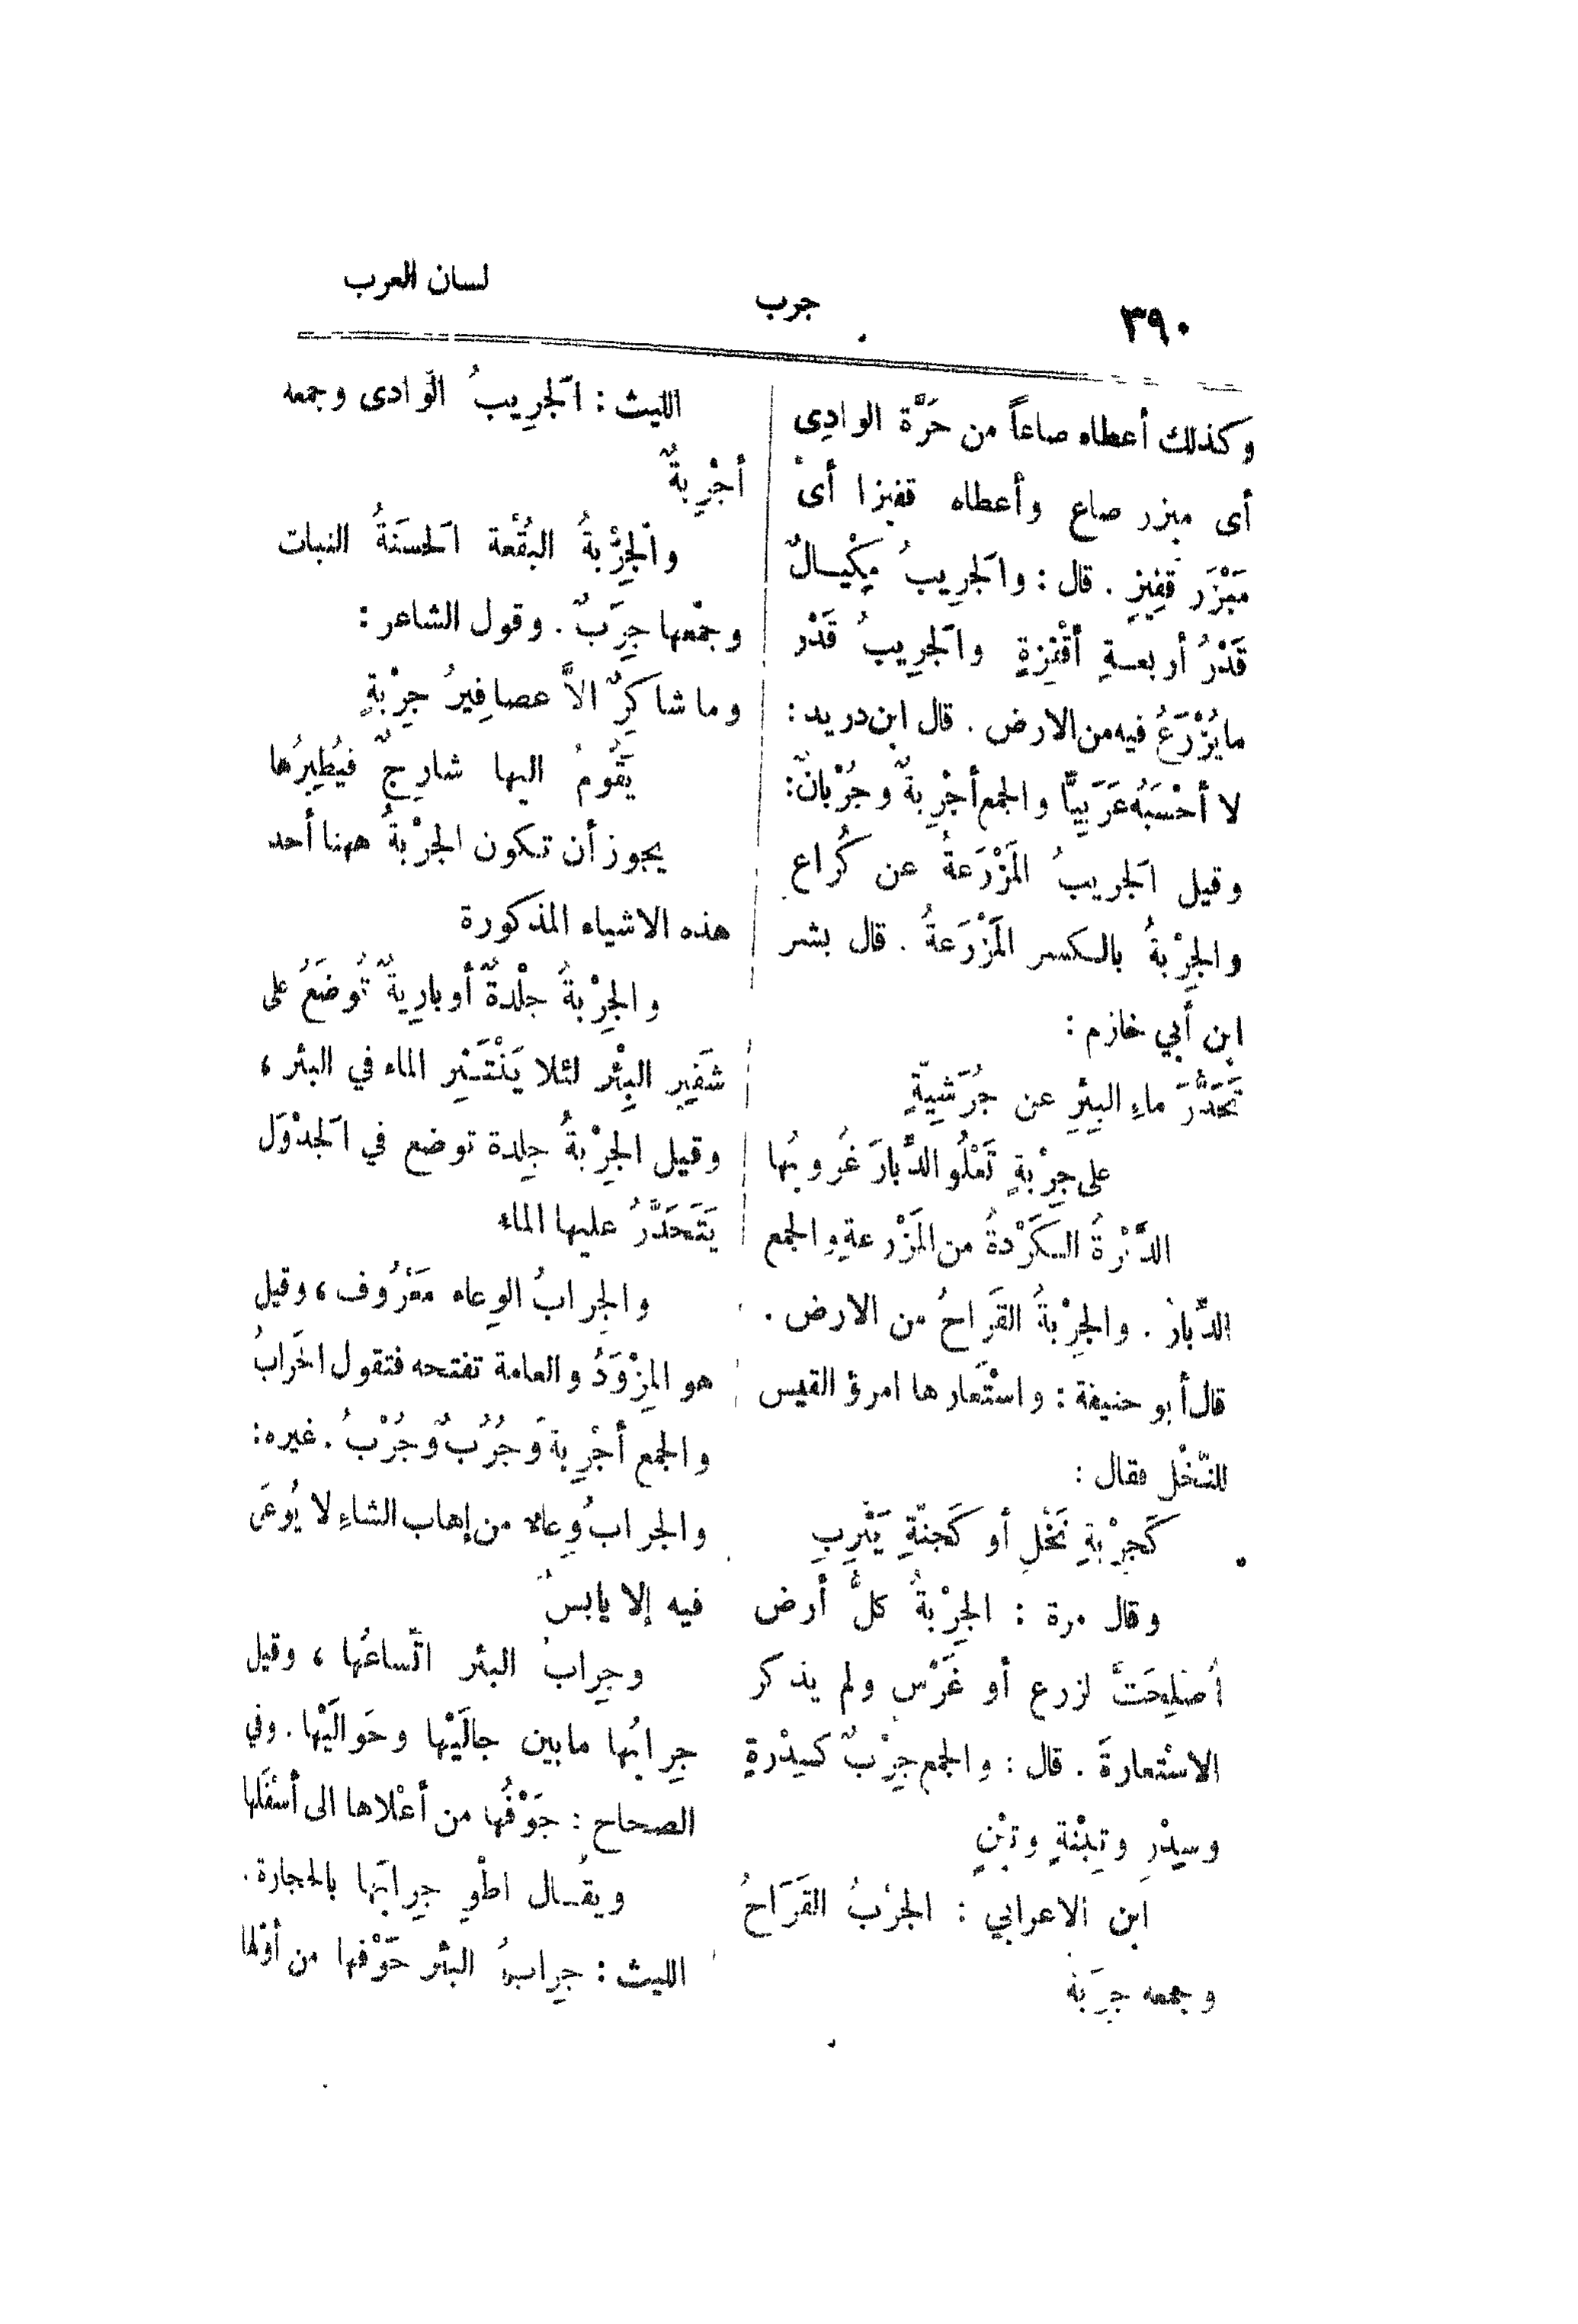 ٣٩٠
جرب
لسان العرب
وكذلك أعطاه صاعاً من حَرَّة الوادِى
أى مبزر صاع وأعطاه قفيزا أىْ
مَبْزَرَ قَفِيزٍ . قال : والجَرِيبُ مِكْيـالٌ
قَدْرُ أربعـةِ أقْفِزةٍ والجَرِيبُ قَدْر
ما يُزْرَعُ فيه من الارض . قال ابن دريد :
لا أحْسَبُه عَرَبِيًّا والجمع أجْرِبةٌ وجُرْبانٌ :
وقيل الجَريبُ المَزْرَعةُ عن كُراعٍ
والجِرْبةُ بالـكسر المَزْرَعةُ . قال بشر
ابن أبي خازم :
تَحَدُّرَ ماءِ البِئرِ عن جُرَشِيّةٍ
على جِرْبةٍ تَعْلُو الدِّبارَ غُروبُها
الدَّبْرةُ الـكَرْدةُ من المَزْرعةِ والجمع
الدِّبارُ . والجِرْبةُ القَرَاحُ من الارض .
قال أبو حنيفة : واسْتَعارها امرؤ القيس
للنّخْل فقال :
كَجِرْبةِ نَخْلٍ أو كَجنّةِ يَثْرِبِ
وقال مرة : الجِرْبةُ كلُّ أرض
أُصْلِحَتْ لزرع أو غَرْسٍ ولم يذكر
الاسْتعارةَ . قال : والجمع جِرْبٌ كسِدْرةٍ
وسِدْرٍ وتِبْنةٍ وتِبْنٍ
ابن الاعرابي : الجِرْبُ القَرَاحُ
وجمعه جِرَبة
الليث : الجَرِيبُ الوَادى وجمعه
أجْرِبةٌ
والجِرْبةُ البُقْعة الحَسَنَةُ النبات
وجمْعها جِرَبٌ . وقول الشاعر :
وما شاكِرٌ الاَّ عصافِيرُ جِرْبةٍ
يَقُومُ اليها شارِجٌ فيُطِيرُها
يجوز أن تـكون الجِرْبةُ ههنا أحد
هذه الاشياء المذكورة
والجِرْبةُ جِلْدةٌ أو بارِيةٌ تُوضَعُ على
شَفِيرِ البِئْر لئلا يَنْتَـثِر الماء في البئر ،
وقيل الجِرْبةُ جِلدة توضع في الجَدْوَل
يَتَحَدَّرُ عليها الماء
والجِرابُ الوِعاء مَعْرُوف ، وقيل
هو المِزْوَدُ والعامة تفتحه فتقول الجَرابُ
والجمع أجْرِبةٌ وجُرُبٌ وجُرْبٌ . غيره :
والجراب وِعاء من إهاب الشاءِ لا يُوعَى
فيه إلا يابسٌ
وجِرابُ البئر اتّساعُها ، وقيل
جِرابُها ما بين جالَيْها وحَوالَيْها . وفي
الصحاح : جَوْفُها من أعْلاها الى أسْفَلها
ويقُـال اطْوِ جِرابَها بالحجارة .
الليث : جِرابُ البئر جَوْفها من أوّلها